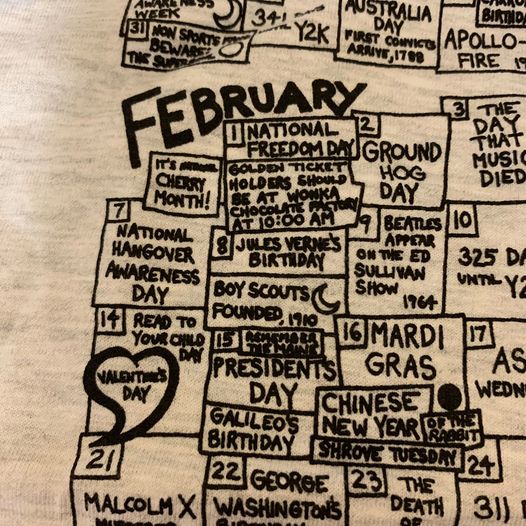 AWARENESS
WEEK
341
Y2K
AUSTRALIA
DAY
FIRST CONVICTS
ARRIVE, 1788
BIRTHD
APOLLO-
FIRE 19
31 NON SPORTS
BEWARE!
THE SUPER
FEBRUARY
1 NATIONAL
FREEDOM DAY
GOLDEN TICKET
HOLDERS SHOULD
BE AT WONKA
CHOCOLATE FACTORY
AT 10:00 AM
2
GROUND
HOG
DAY
3 THE
DAY
THAT
MUSIC
DIED
IT'S
CHERRY
MONTH!
7
NATIONAL
HANGOVER
AWARENESS
DAY
8 JULES VERNE'S
BIRTHDAY
BOY SCOUTS
FOUNDED, 1910
9 BEATLES
APPEAR
ON THE ED
SULLIVAN
SHOW
1964
10
325 DA
UNTIL Y2
14 READ TO
YOUR CHILD
DAY
VALENTINE'S
DAY
15 REMEMBER
THE MAINE
PRESIDENTS
DAY
GALILEO'S
BIRTHDAY
16 MARDI
GRAS
CHINESE
NEW YEAR OF THE
RABBIT
SHROVE TUESDAY
17
AS
WEDN
21
MALCOLM X
22 GEORGE
WASHINGTON'S
23 THE
DEATH
OF
24
311